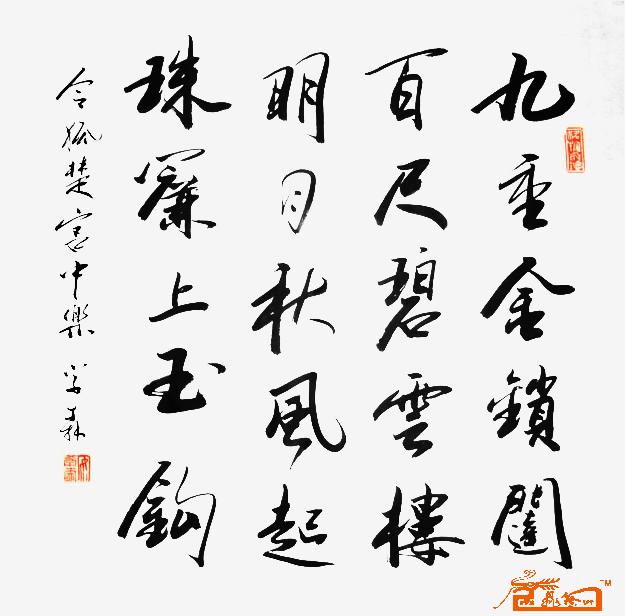 九重金鎖闥
百尺碧雲樓
明月秋風起
珠簾上玉鈎
令狐楚宫中樂 学森